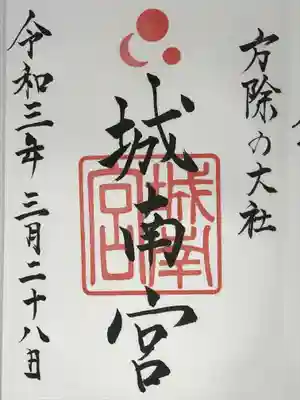 方除の大社
城南宮
城南宮印
令和三年 三月二十八日